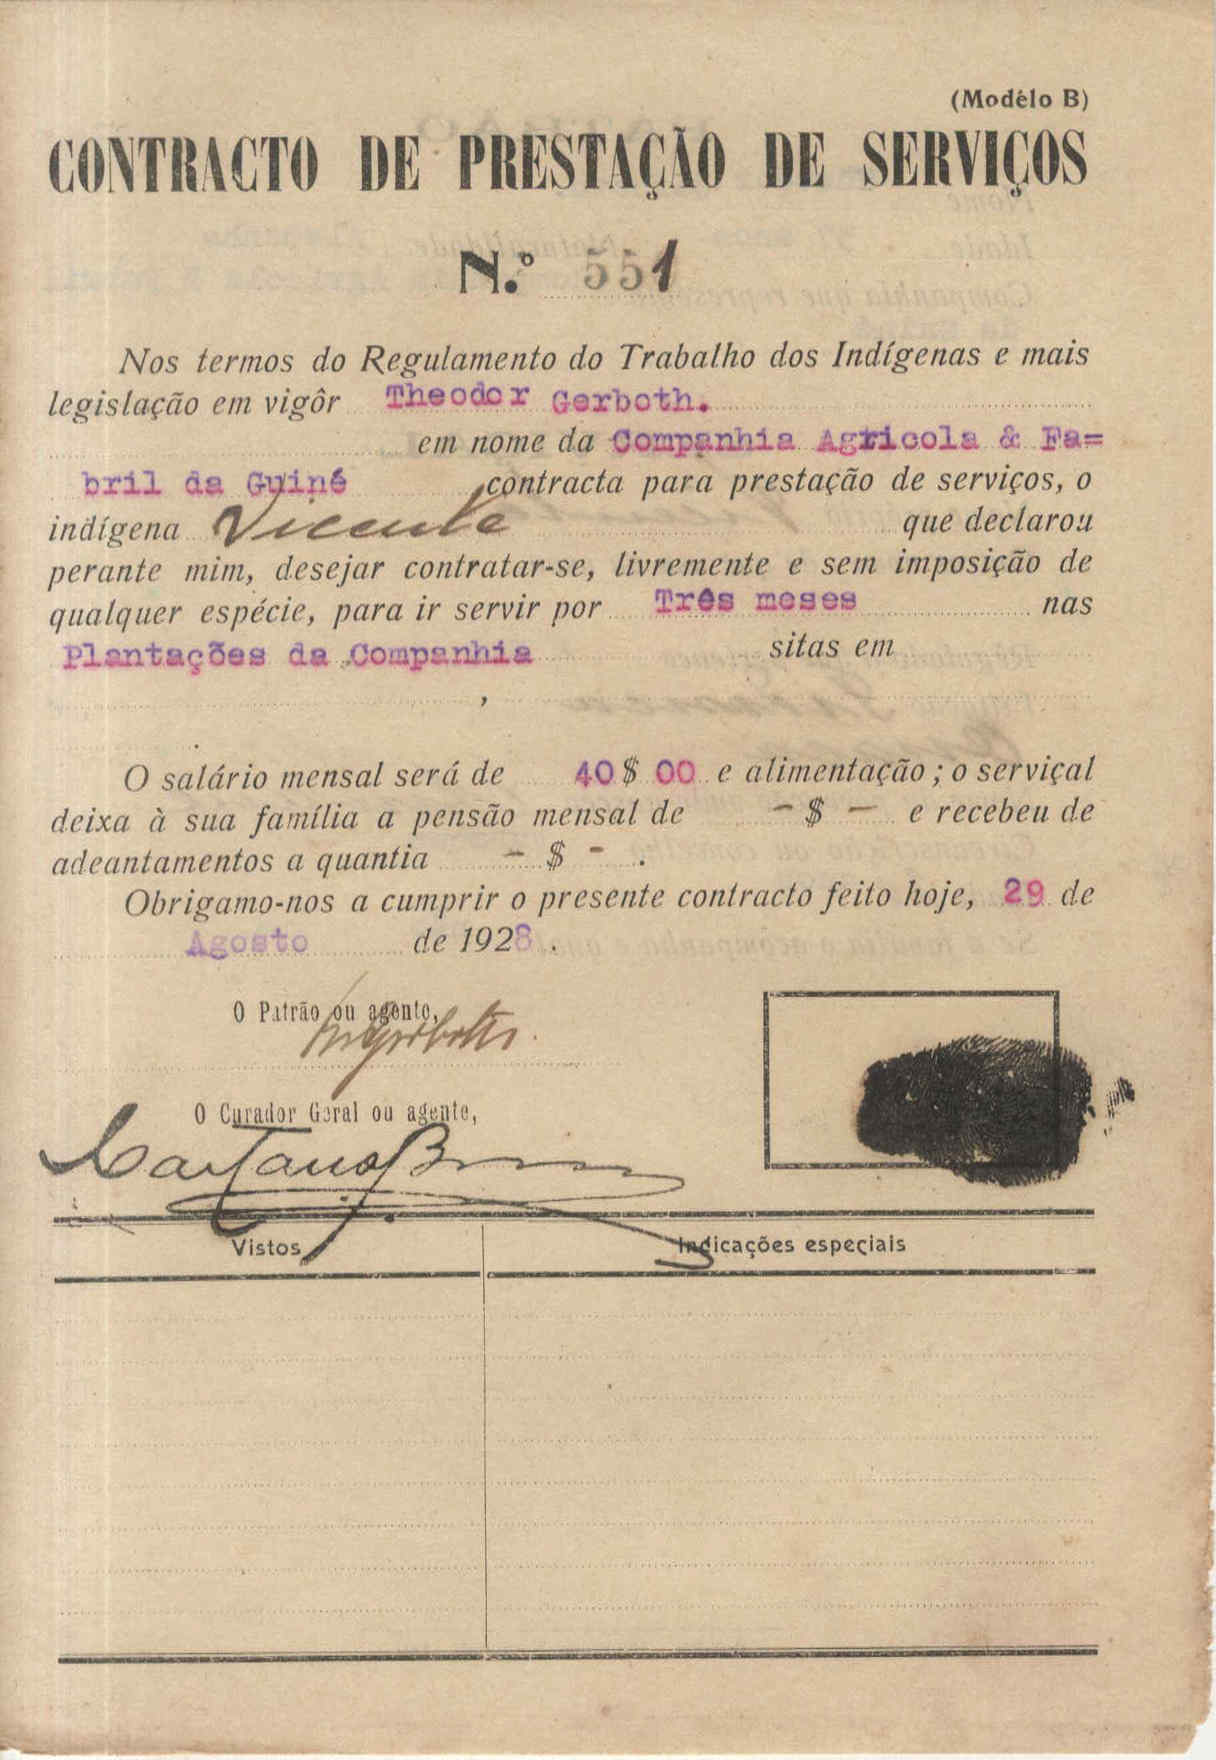 (Modélo B)
CONTRACTO DE PRESTAÇÃO DE SERVIÇOS
N.º 551
Nos termos do Regulamento do Trabalho dos Indígenas e mais
legislação em vigôr Theodor Gerboth.
em nome da Companhia Agricola & Fa=
bril da Guiné contracta para prestação de serviços, o
indígena Vicente que declarou
perante mim, desejar contratar-se, livremente e sem imposição de
qualquer espécie, para ir servir por Três meses nas
Plantações da Companhia sitas em
O salário mensal será de 40$00 e alimentação; o serviçal
deixa à sua família a pensão mensal de -$- e recebeu de
adeantamentos a quantia -$-.
Obrigamo-nos a cumprir o presente contracto feito hoje, 29 de
Agosto de 1928.
O Patrão ou agente,
O Curador Geral ou agente,
Vistos
Indicações especiais